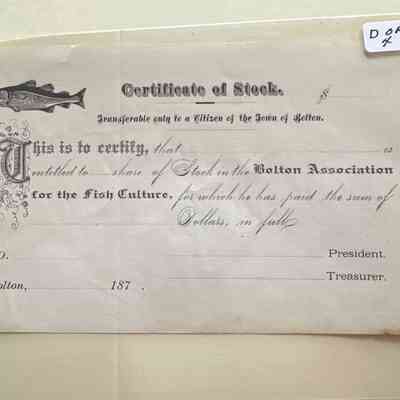 Certificate of Stock. $
Transferable only to a Citizen of the Town of Bolton.
This is to certify, that is
entitled to share of Stock in the Bolton Association
for the Fish Culture, for which he has paid the sum of
Dollars, in full
O. President.
Treasurer.
olton, 187 .